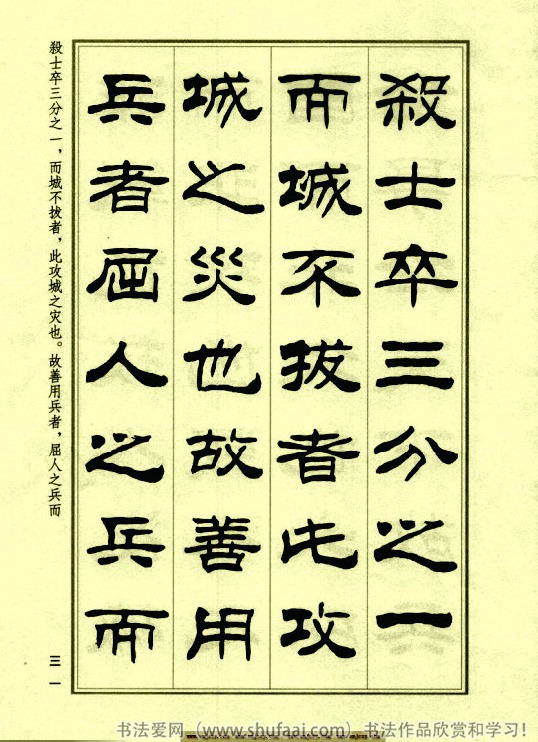 殺士卒三分之一
而城不拔者此攻
城之災也故善用
兵者屈人之兵而
殺士卒三分之一，而城不拔者，此攻城之灾也。故善用兵者，屈人之兵而
三一
书法爱网（www.shufaai.com）书法作品欣赏和学习！